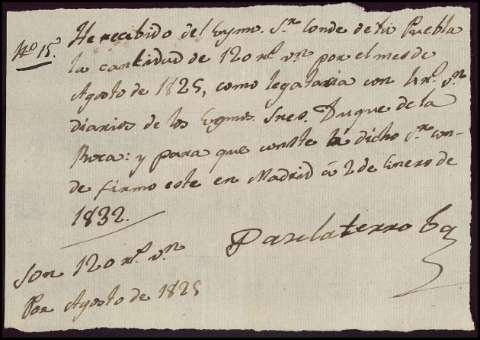 Nº 15. He recibido del Exmo. Sr. Conde de la Puebla
la cantidad de 120 rs. vn. por el mes de
Agosto de 1825, como legataria con 4 rs. vn.
diarios de los Exmos. Sres. Duque de la
Roca: y para que conste a dicho Sr. Con-
de firmo este en Madrid á 2 de Enero de
1832.
Son 120 rs. vn.
Por Agosto de 1825